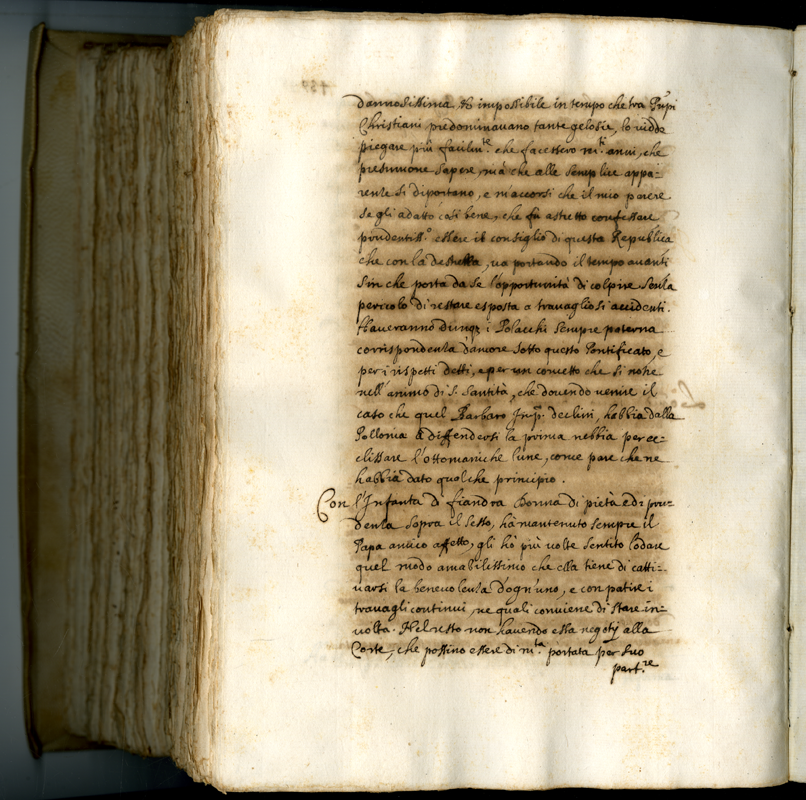 dannosissima et impossibile in tempo che tra Pnpi
Christiani predominavano tante gelosie, lo vidde
piegare più facilmte. che facessero molti anni, che
presumone sapere, mà che alle semplice appa-
renle si diportano, e m'accorsi che il mio parere
se gli adattò così bene, che fù astretto confessare
prudentisso. essere il consiglio di questa Republica
che con la destrella, va portando il tempo avanti
sin che porta da se l'opportunità di colpire senla
pericolo di restare esposta a travagliosi accidenti.
Haveranno dunq; i Polacchi sempre paterna
corrispondenla d'amore sotto questo Pontificato, e
per i rispetti detti, e per un concetto che si nohe
nell'animo di S. Santità, che dovendo venire il
caso che quel Barbaro Imp. declini, habbia dalla
Pollonia à diffendersi la prima nebbia per ec-
clissare l'ottomaniche lune, come pare che ne
habbia dato qualche principio.
Con l'Infanta di fiandra Donna di pietà e di pru-
denla sopra il sesso, hà mantenuto sempre il
Papa amico affetto, gli hò più volte sentito lodare
quel modo amabilissimo che essa tiene di catti-
varsi la benevolenla d'ogn'uno, e con patire i
travagli continui, ne quali conviene di stare in-
volta. Nel resto non havendo essa negotij alla
Corte, che possino essere di mta. portata per suo
part.re